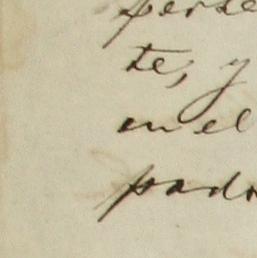 perse
te, y
en el
pado